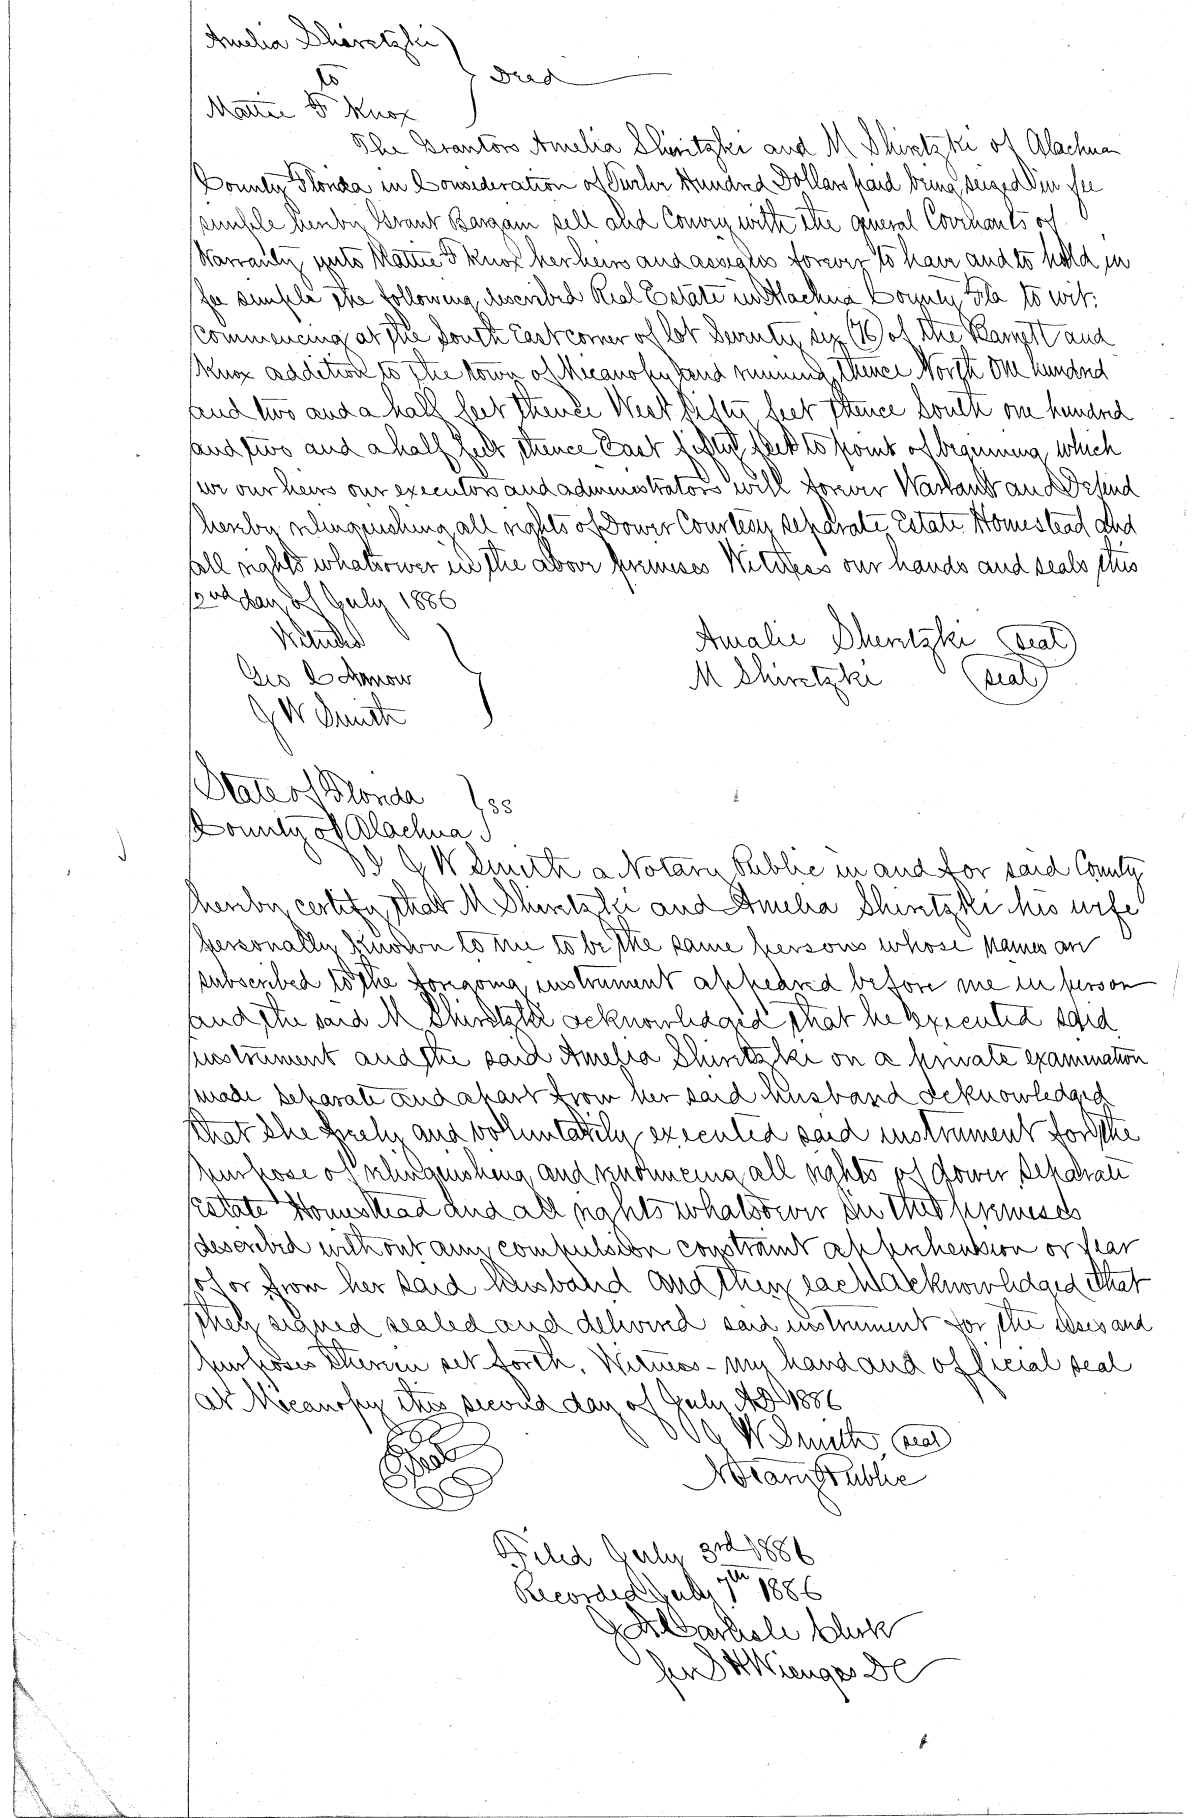 Amelia Shiretzki
to } Deed
Mattie F Knox
The Grantors Amelia Shiretzki and M Shiretzki of Alachua
County Florida in Consideration of Twelve Hundred Dollars paid being seized in fee
simple hereby Grant Bargain sell and Convey with the general Covenants of
Warranty unto Mattie F Knox her heirs and assigns forever to have and to hold in
fee simple the following described Real Estate in Alachua County Fla to wit:
Commencing at the South East corner of lot Seventy six (76) of the and
Knox addition to the town of Micanopy and running thence North One hundred
and two and a half feet thence West fifty feet thence South one hundred
and two and a half feet thence East fifty feet to point of beginning which
we our heirs our executors and administrators will forever Warrant and Defend
hereby relinquishing all rights of Dower Courtesy separate Estate Homestead and
all rights whatsoever in the above premises Witness our hands and seals this
2nd day of July 1886
Witness
Amalie Sheretzki (seal)
Geo C
M Shiretzki (seal)
J W Smith
State of Florida } ss
County of Alachua
I J W Smith a Notary Public in and for said County
hereby certify that M Shiretzki and Amelia Shiretzki his wife
personally known to me to be the same persons whose names are
subscribed to the foregoing instrument appeared before me in person
and the said M Shiretzki acknowledged that he executed said
instrument and the said Amelia Shiretzki on a private examination
made separate and apart from her said husband acknowledged
that she freely and voluntarily executed said instrument for the
purpose of relinquishing and renouncing all rights of dower separate
Estate Homestead and all rights whatsoever in the premises
described without any compulsion constraint apprehension or fear
of or from her said husband and they each acknowledged that
they signed sealed and delivered said instrument for the uses and
purposes therein set forth. Witness - my hand and official seal
at Micanopy this second day of July AD 1886
J W Smith (seal)
Seal
Notary Public
Filed July 3rd 1886
Recorded July 7th 1886
J A Carlisle Clerk
per S H Wienges DC